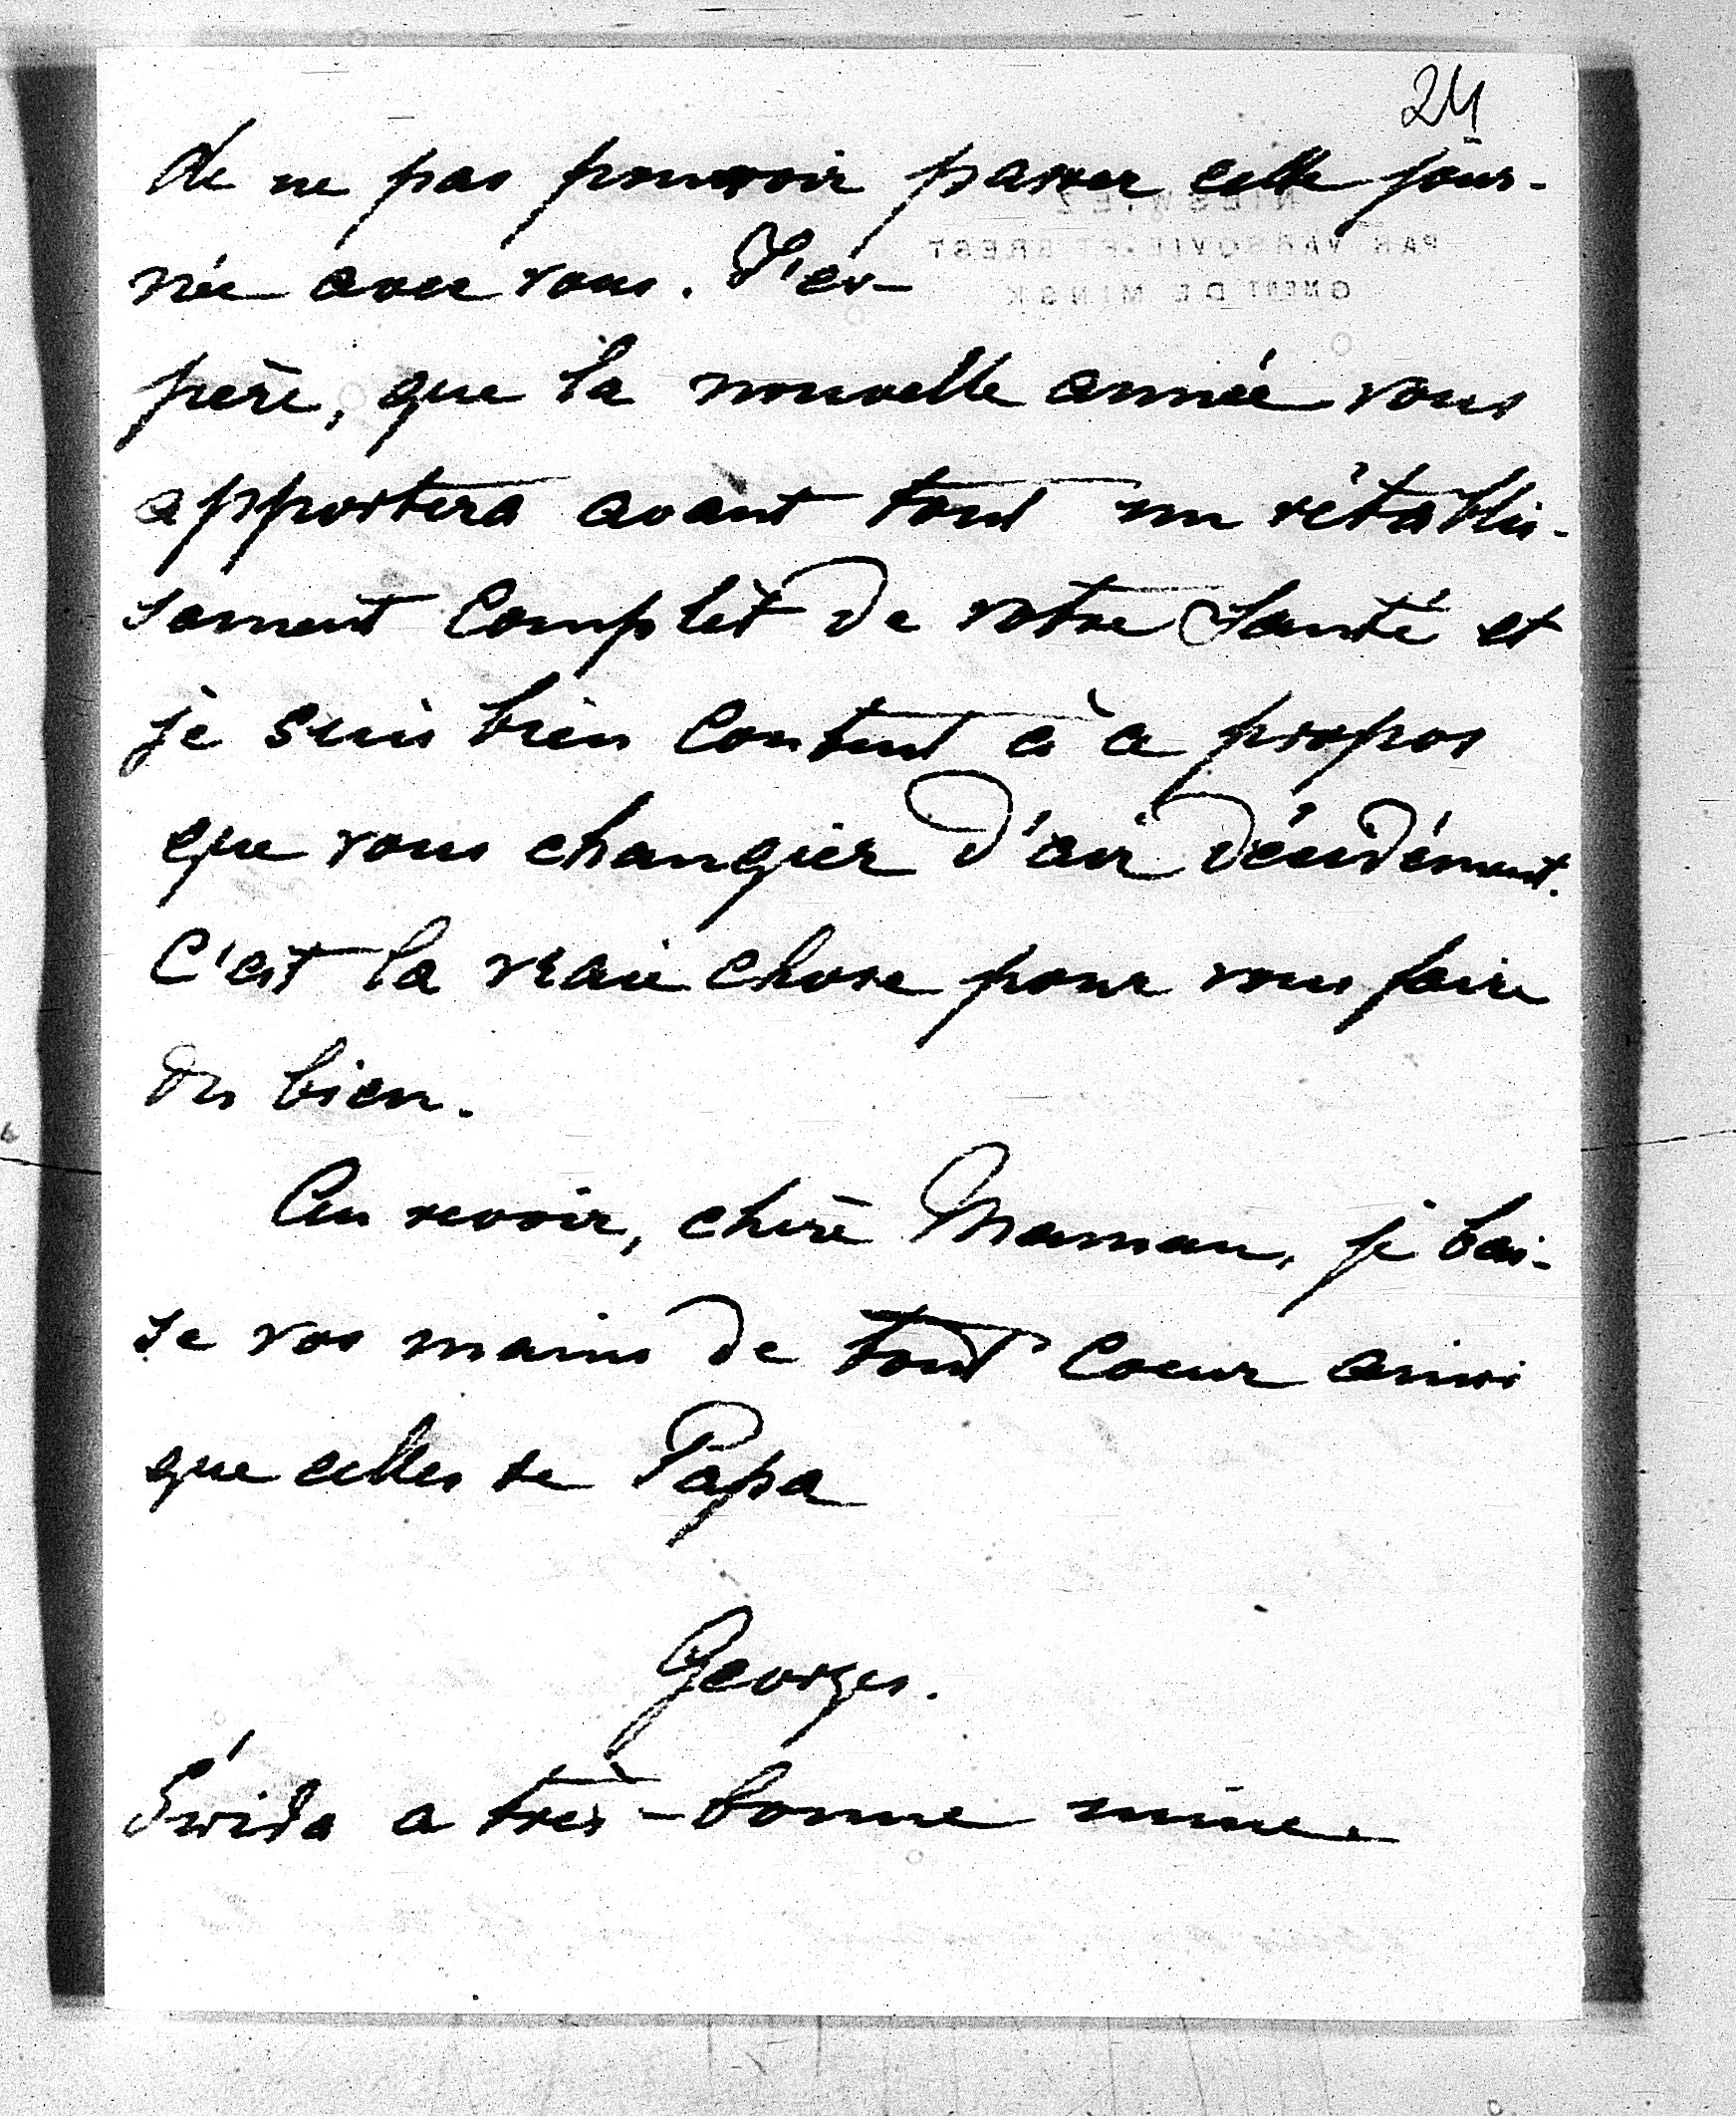 24
de ne pas pouvoir passer cette jour-
née avec vous. J'es-
NIESWIEZ
PAR VARSOVIE ET BREST
GMENT DE MINSK
père, que la nouvelle année vous
apportera avant tout un rétablis-
sement complèt de votre Santé et
je suis bien content à ce propos
que vous changiez d'air décidément.
C'est la vraie chose pour vous faire
du bien.
Au revoir, chère Maman, je bai-
se vos mains de tout coeur ainsi
que celles de Papa
Georges.
Świda a très-bonne mine.